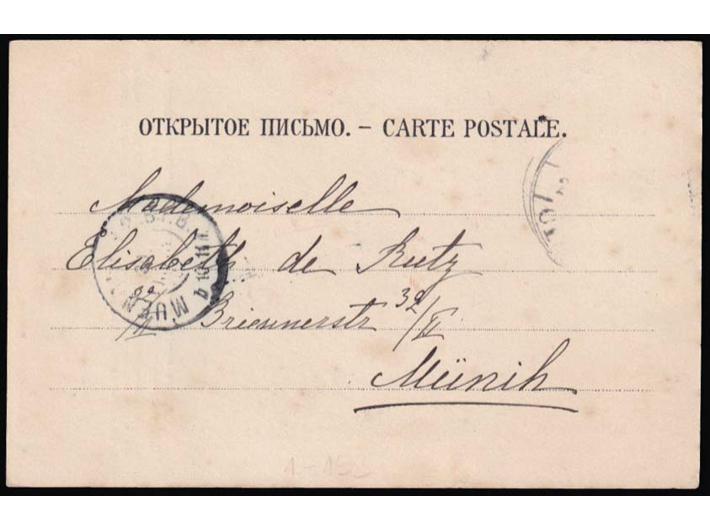 ОТКРЫТОЕ ПИСЬМО. – CARTE POSTALE.
Mademoiselle
Elisabeth de Rutz
32/II Briennerstr 32/II
Münih